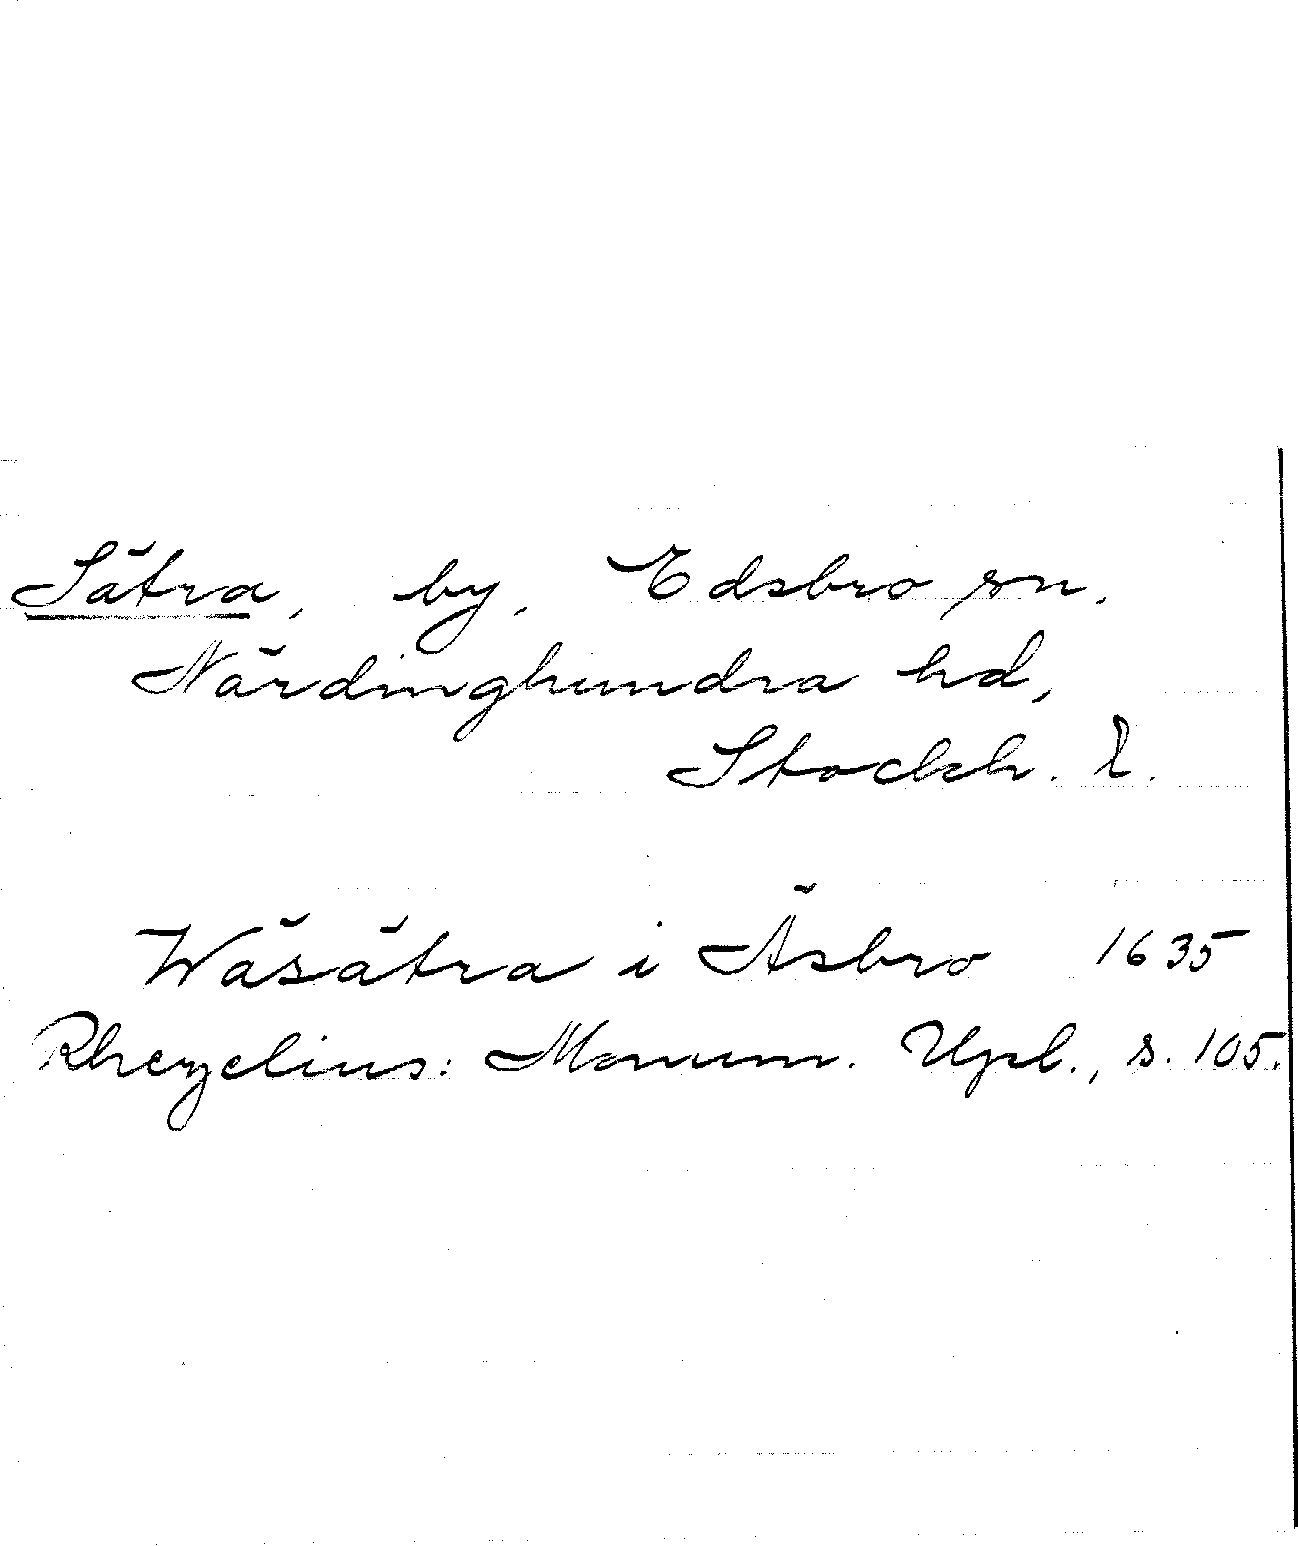 Sätra, by, Edsbro sn.
Närdinghundra hd,
Stockh. l.
Wäsätra i Äsbro 1635
Rhezelius: Monum. Upl., s. 105.